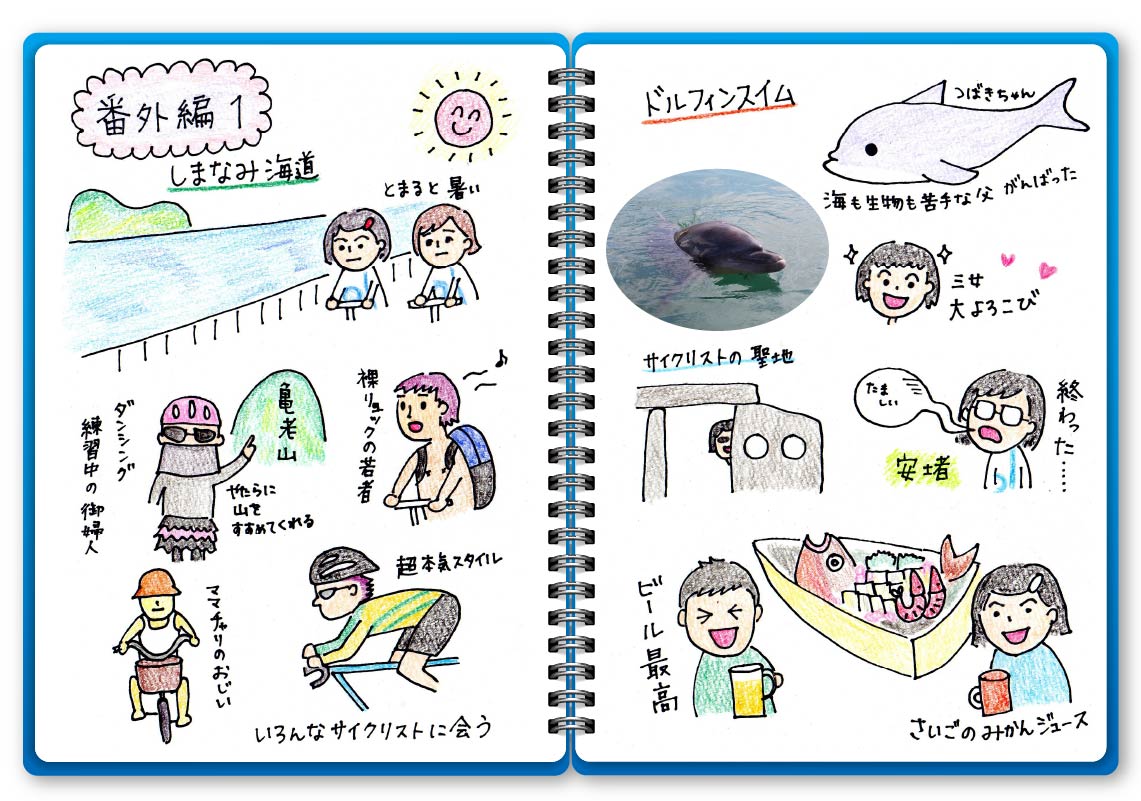 番外編1
しまなみ海道
とまると暑い
ダンシング
練習中の御婦人
亀老山
やたらに
山を
すすめてくれる
裸リュックの若者
♪
ママチャリのおじい
超本気スタイル
いろんなサイクリストに会う
ドルフィンスイム
つばきちゃん
海も生物も苦手な父 がんばった
三女
大よろこび
サイクリストの聖地
たま
しい
終わった……
安堵
ビール最高
さいごのみかんジュース